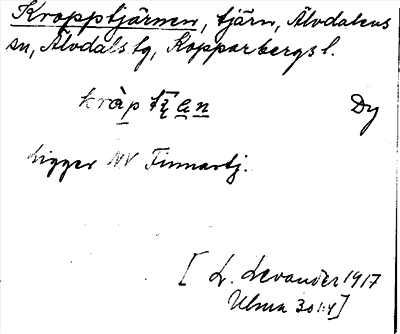 Kropptjärnen, tjärn, Älvdalens
sn, Älvdals tg, Kopparbergs l.
kràp tʂ̌an Dy
Ligger NV Finnartj.
[L. Levander 1917
Ulma 30:4]